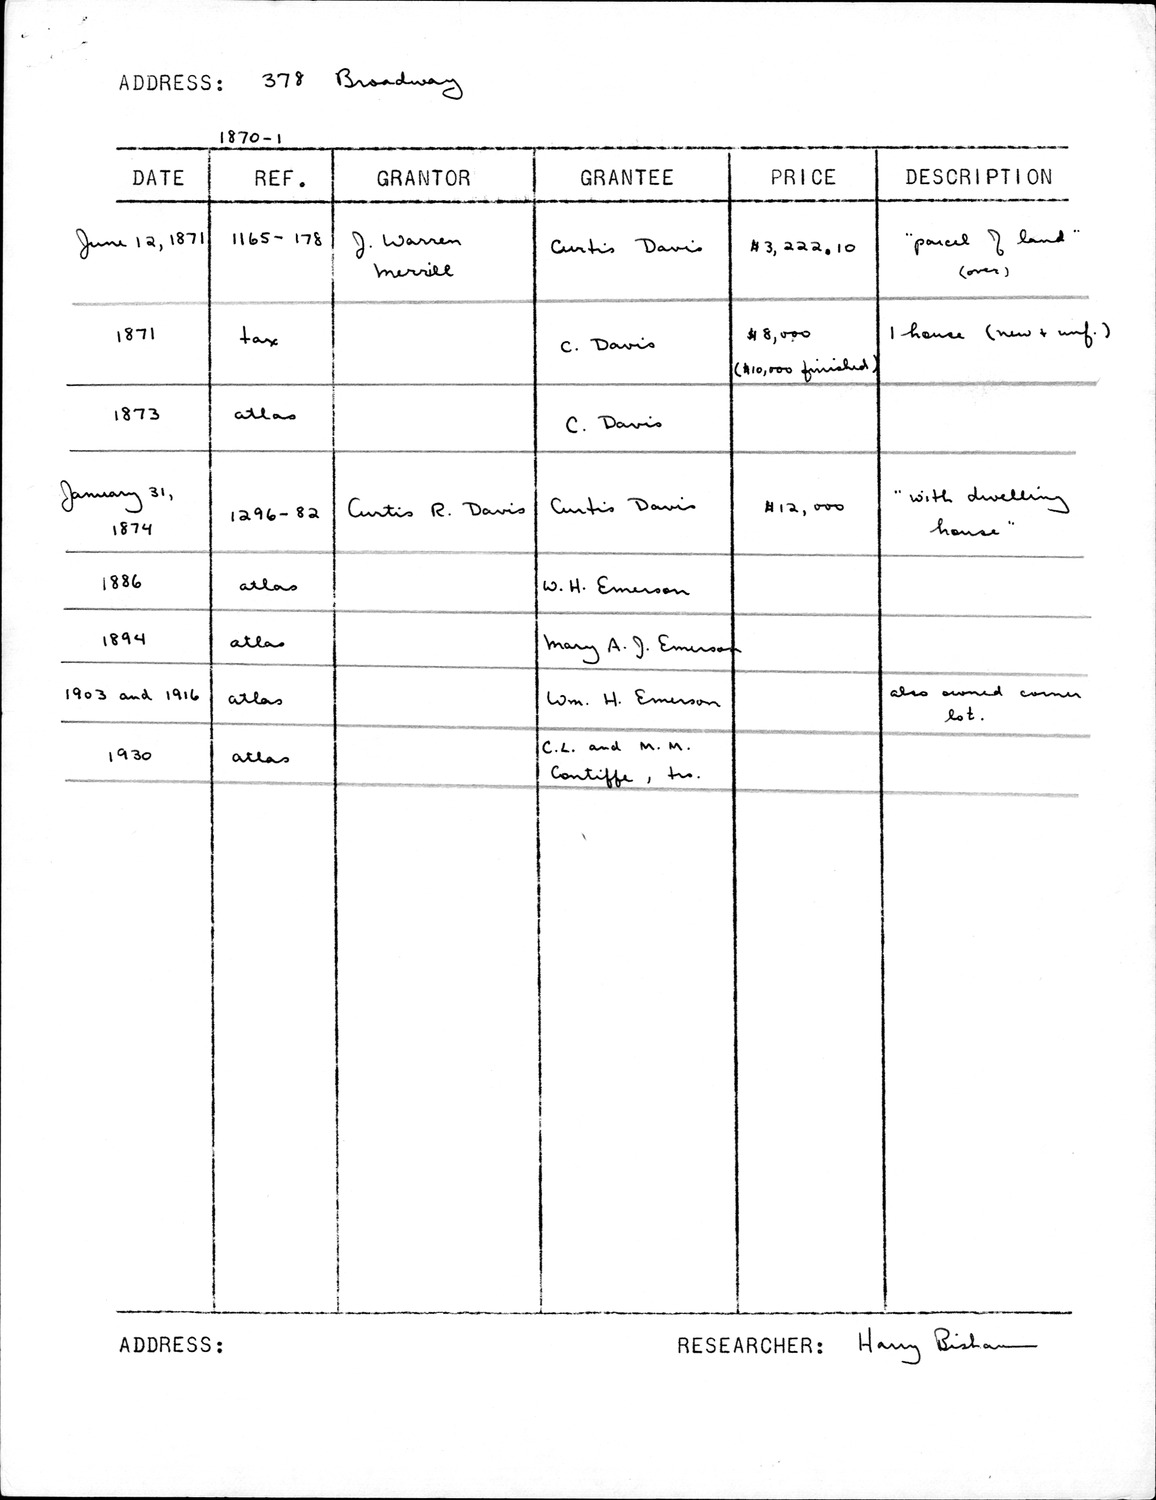 ADDRESS: 378 Broadway
1870-1
DATE REF. GRANTOR GRANTEE PRICE DESCRIPTION
June 12, 1871 1165-178 J. Warren Merrill Curtis Davis $3,222.10 "parcel of land" (over)
1871 tax C. Davis $8,000 ($10,000 finished) 1 house (new & unf.)
1873 atlas C. Davis
January 31, 1874 1296-82 Curtis R. Davis Curtis Davis $12,000 "with dwelling house"
1886 atlas W. H. Emerson
1894 atlas Mary A. J. Emerson
1903 and 1916 atlas Wm. H. Emerson also owned corner lot.
1930 atlas C.L. and M. M. Contiffe, trs.
ADDRESS: RESEARCHER: Harry